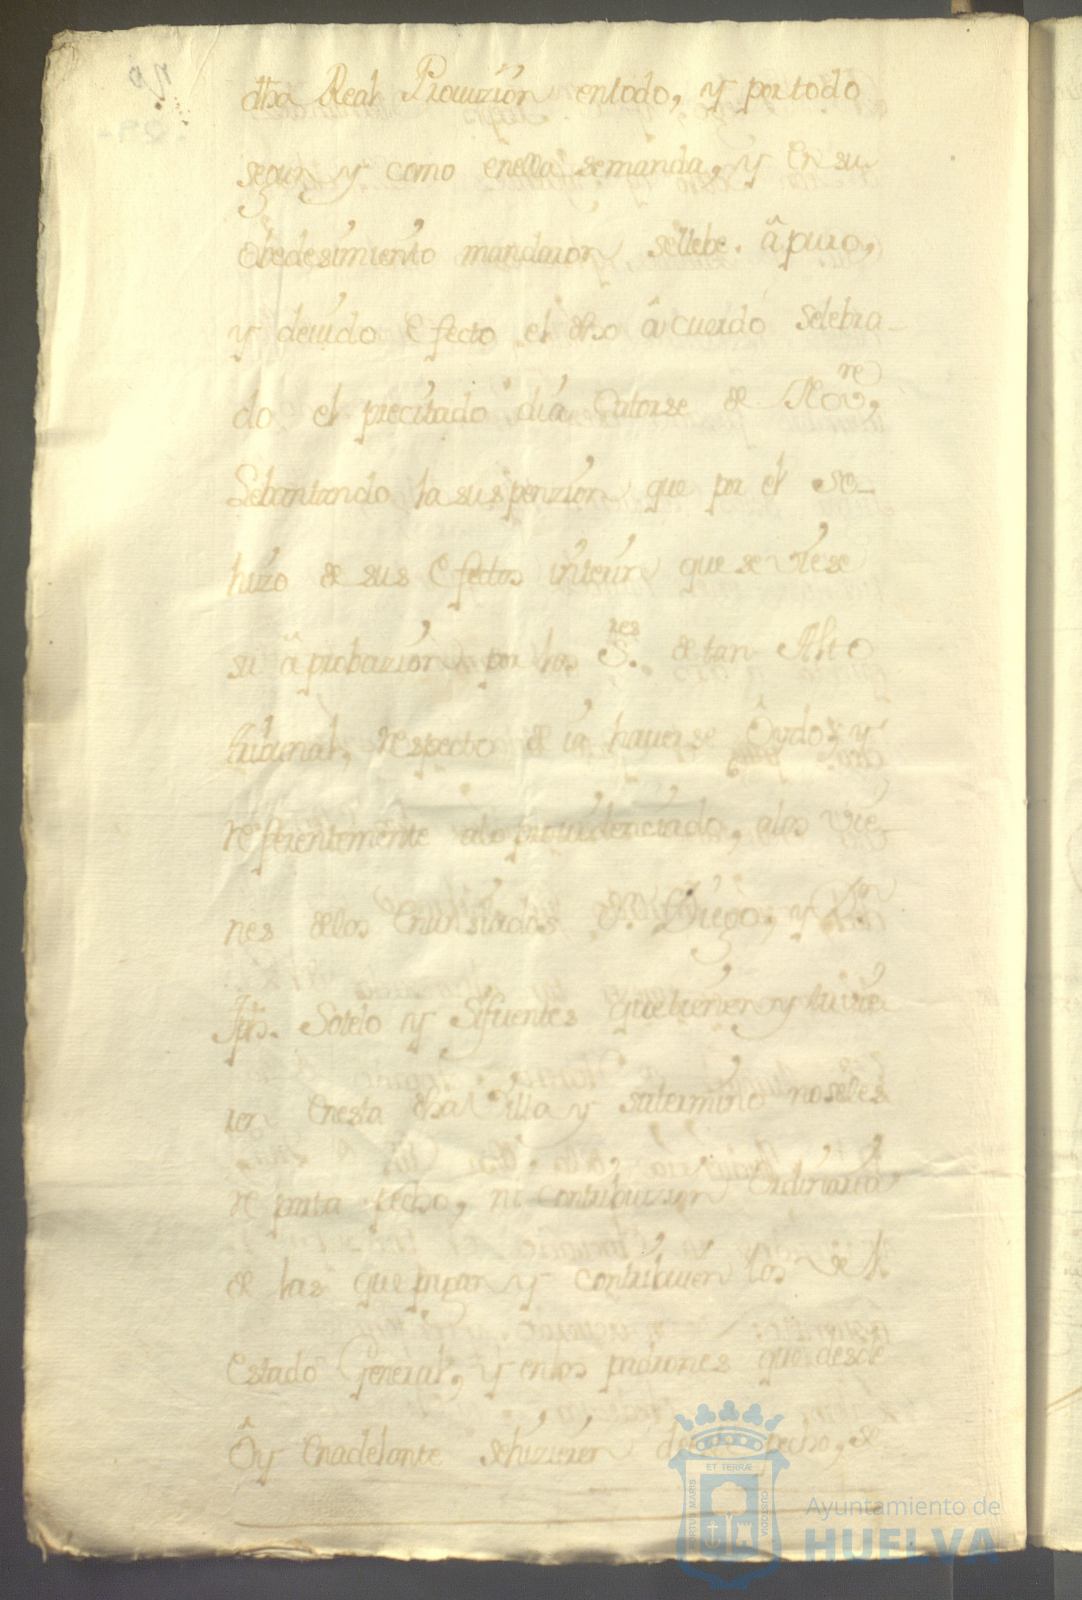 dha Real Provizion entodo, y portodo
segun y como enella semanda, y en su
obedesimiento mandaron, sellebe. â puro,
y deuido Efecto el dho âcuerdo Selebra-
do el precitado dia Catorse de Nov.re,
Lebantando la suspenzion que por el se-
hizo de sus Efectos interin que se viese
su âprobazion por los S.res de tan Alto
tribunal, respecto de ia hauerse Ôydo, y
referentemente alo prouidenciado, alos vie-
nes delos Enunsiados Dn. Diego, y Dn
Jph. Sotelo y Sifuentes que tienen y tuvie
ren Enesta dha Villa y sutermino noseles
reparta pecho, ni Contribusion Ordinaria
de las que pagan y contribuien los del
Estado General, y enlos padrones que desde
Ôy Enadelante sehizieren deste pecho, se
PORTUS MARIS
ET TERRÆ
CUSTODIA
Ayuntamiento de
HUELVA